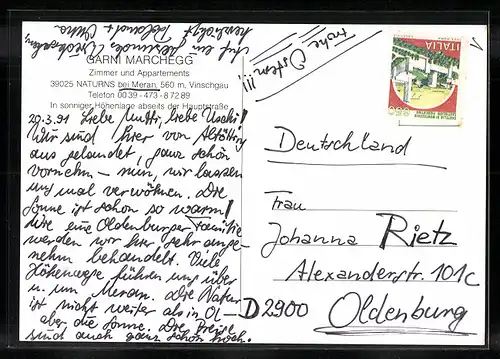 Auf ein gesundes Wiedersehen
herzlichst Roland + Jutta
GARNI MARCHEGG
Zimmer und Appartements
39025 NATURNS bei Meran, 560 m, Vinschgau
Telefon 0039 - 473 - 8 72 89
In sonniger Höhenlage abseits der Hauptstraße
29.3.91 Liebe Mutti, liebe Uschi!
Wir sind hier von Altötting
aus gelandet, ganz schön
vornehm – nun, wir lassen
uns mal verwöhnen. Die
Sonne ist schon so warm!
Wie eine Oldenburger Familie
werden wir hier sehr ange-
nehm behandelt. Viele
Höhenwege führen uns über
u. um Meran. Die Natur
ist nicht weiter als in Ol-
aber die Sonne. Die Preise
sind auch ganz schön hoch.
Frohe Ostern!!!
ITALIA
Deutschland
Frau
Johanna Rietz
Alexanderstr. 101c
D 2900 Oldenburg